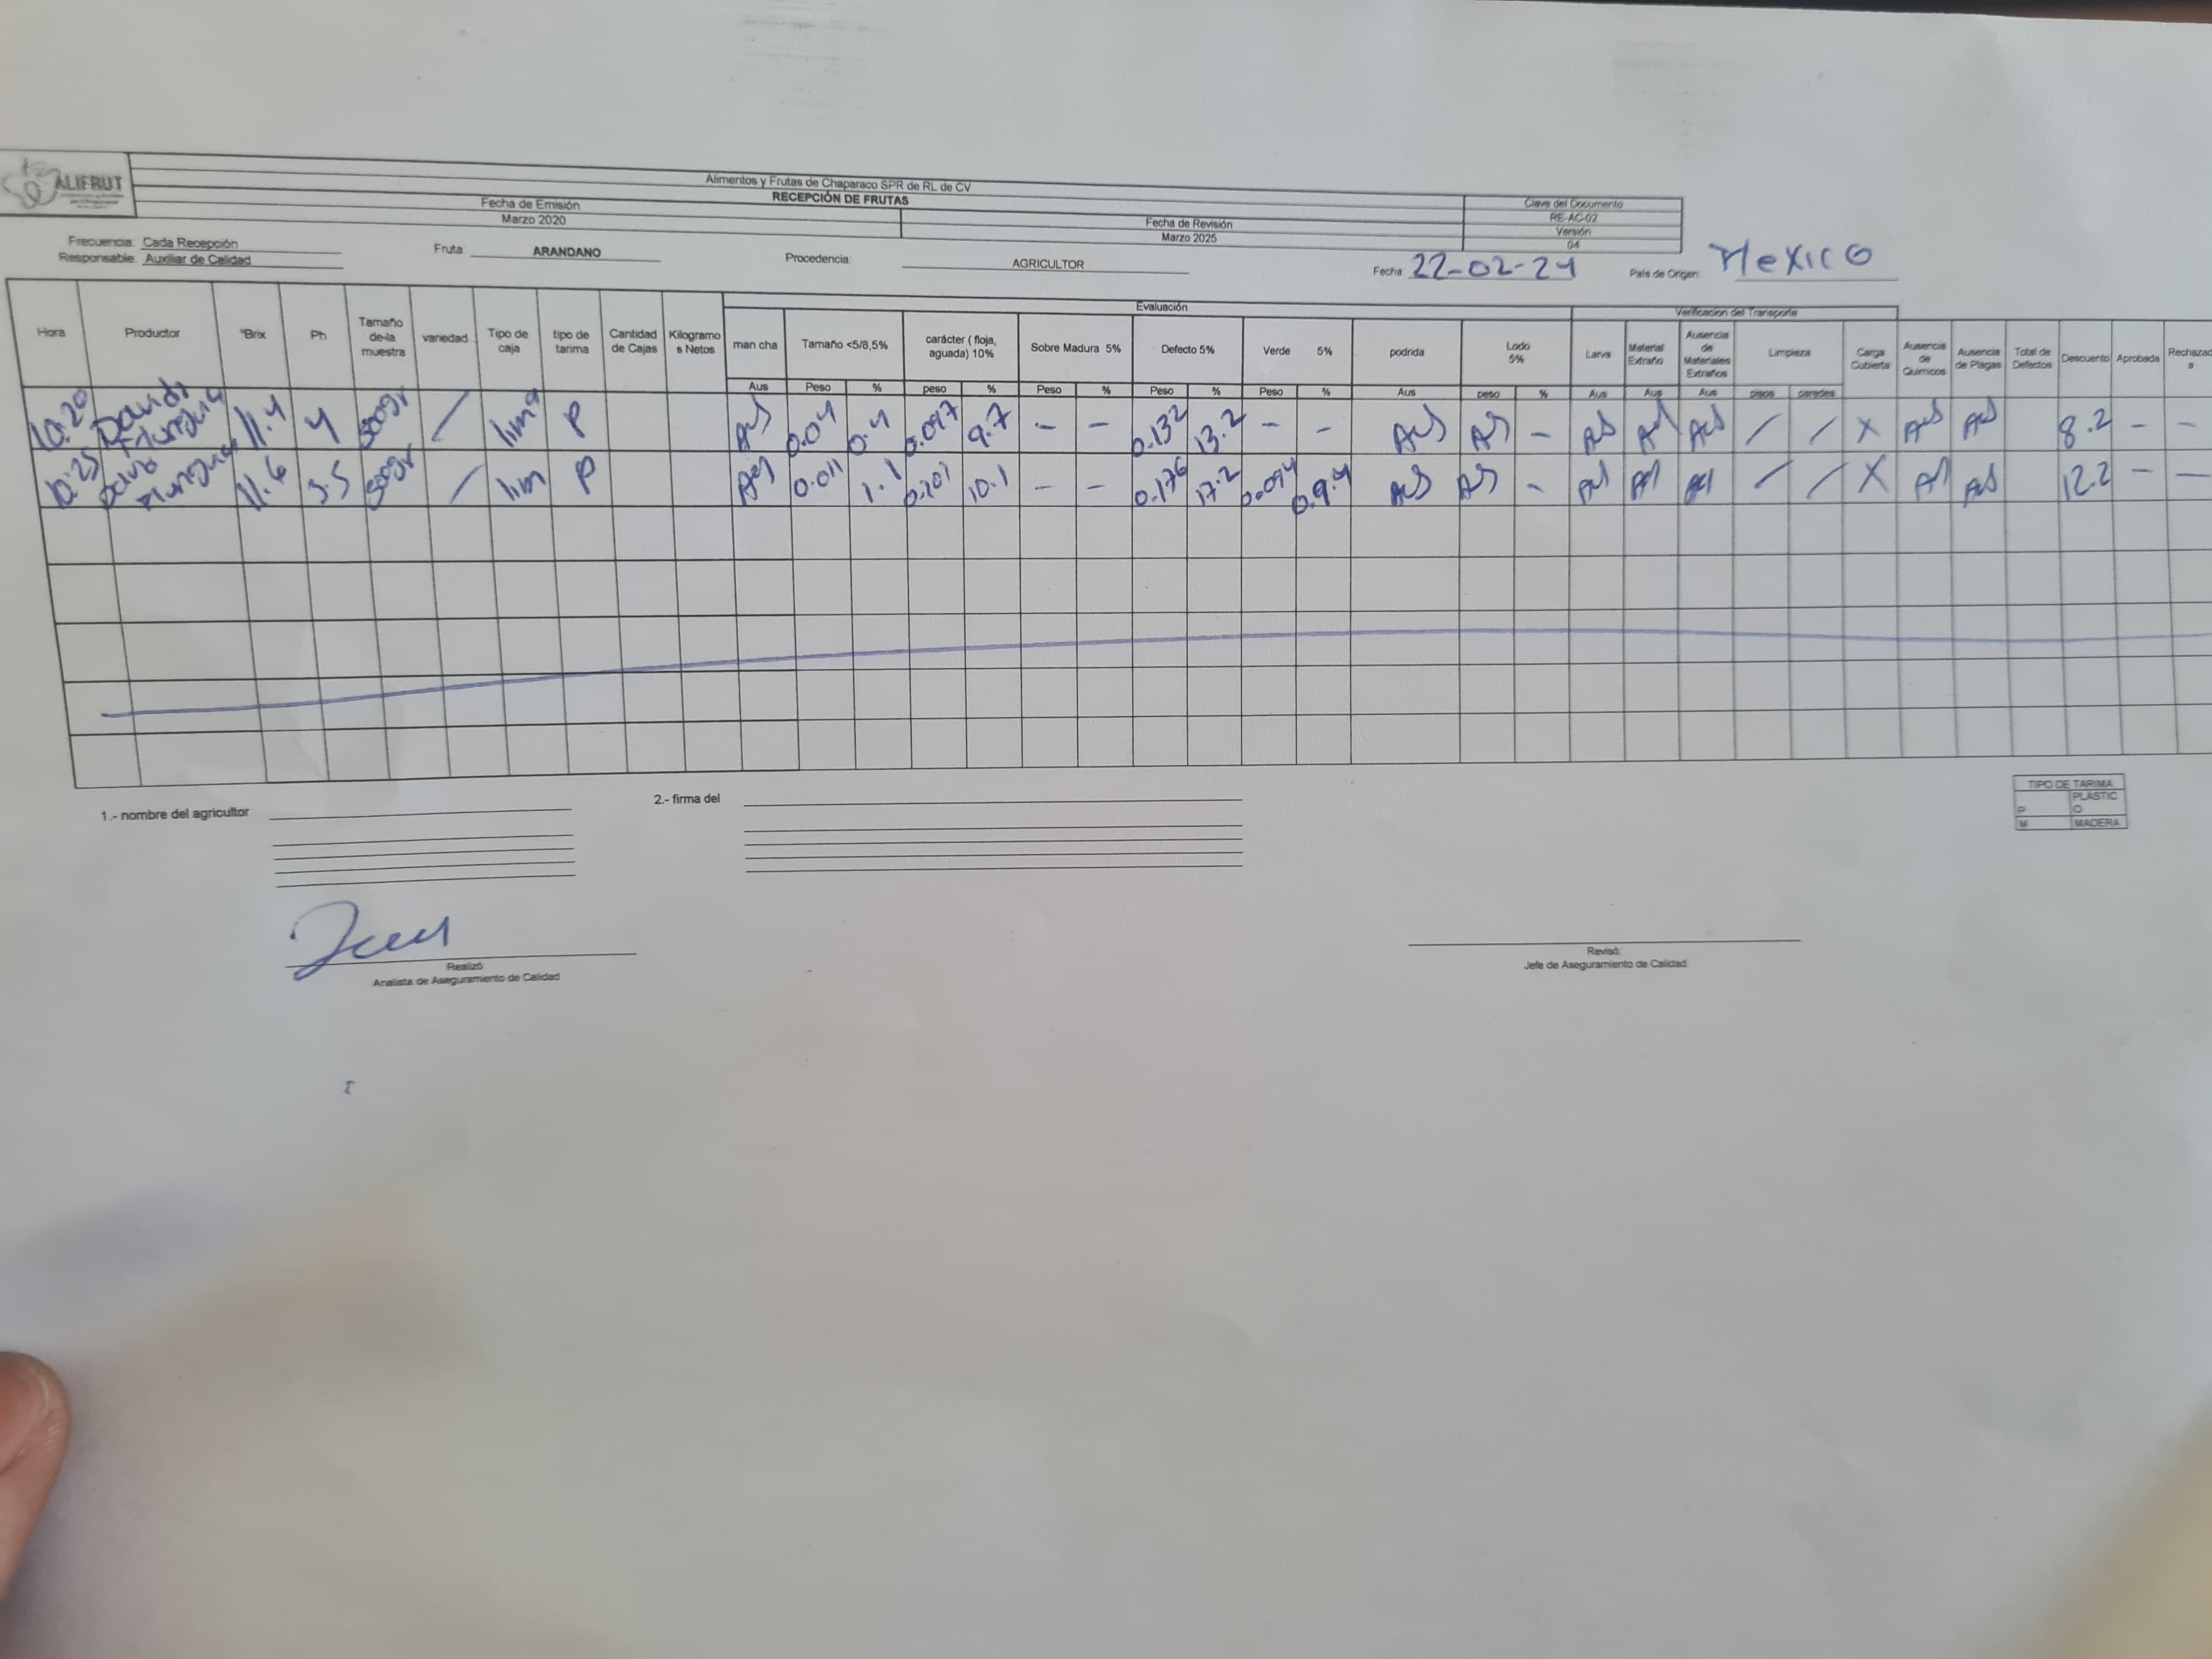 ALIFRUT
Alimentos y Frutas de Chaparaco SPR de RL de CV
RECEPCIÓN DE FRUTAS
Fecha de Emisión
Marzo 2020
Fecha de Revisión
Marzo 2025
Clave del Documento
RE-AC-02
Versión
04
Frecuencia: Cada Recepción
Responsable: Auxiliar de Calidad
Fruta: ARANDANO
Procedencia: AGRICULTOR
Fecha: 22-02-24
País de Origen: Mexico
Evaluación
Verificacion del Transporte
Hora Productor °Brix Ph Tamaño de-la muestra variedad Tipo de caja tipo de tarima Cantidad de Cajas Kilogramo s Netos man cha Tamaño <5/8,5% carácter ( floja, aguada) 10% Sobre Madura 5% Defecto 5% Verde 5% podrida Lodo 5% Larva Material Extraño Ausencia de Materiales Extraños Limpieza Carga Cubierta Ausencia de Quimicos Ausencia de Plagas Total de Defectos Descuento Aprobada Rechazad a
Aus Peso % peso % Peso % Peso % Peso % Aus peso % Aus Aus Aus pisos paredes
10:20 11.4 4 500gr / P Aus 0.04 0.4 0.097 9.7 - - 0.132 13.2 - - Aus Aus - Aus Aus Aus / / X Aus Aus 8.2 - -
10:25 11.6 3.5 500gr / lim P Aus 0.011 1.1 10.1 - - 0.176 17.2 Aus Aus - Aus Aus Aus / / X Aus Aus 12.2 - -
1.- nombre del agricultor
2.- firma del
TIPO DE TARIMA
P PLASTIC O
M MADERA
Realizó
Analista de Aseguramiento de Calidad
Revisó:
Jefe de Aseguramiento de Calidad